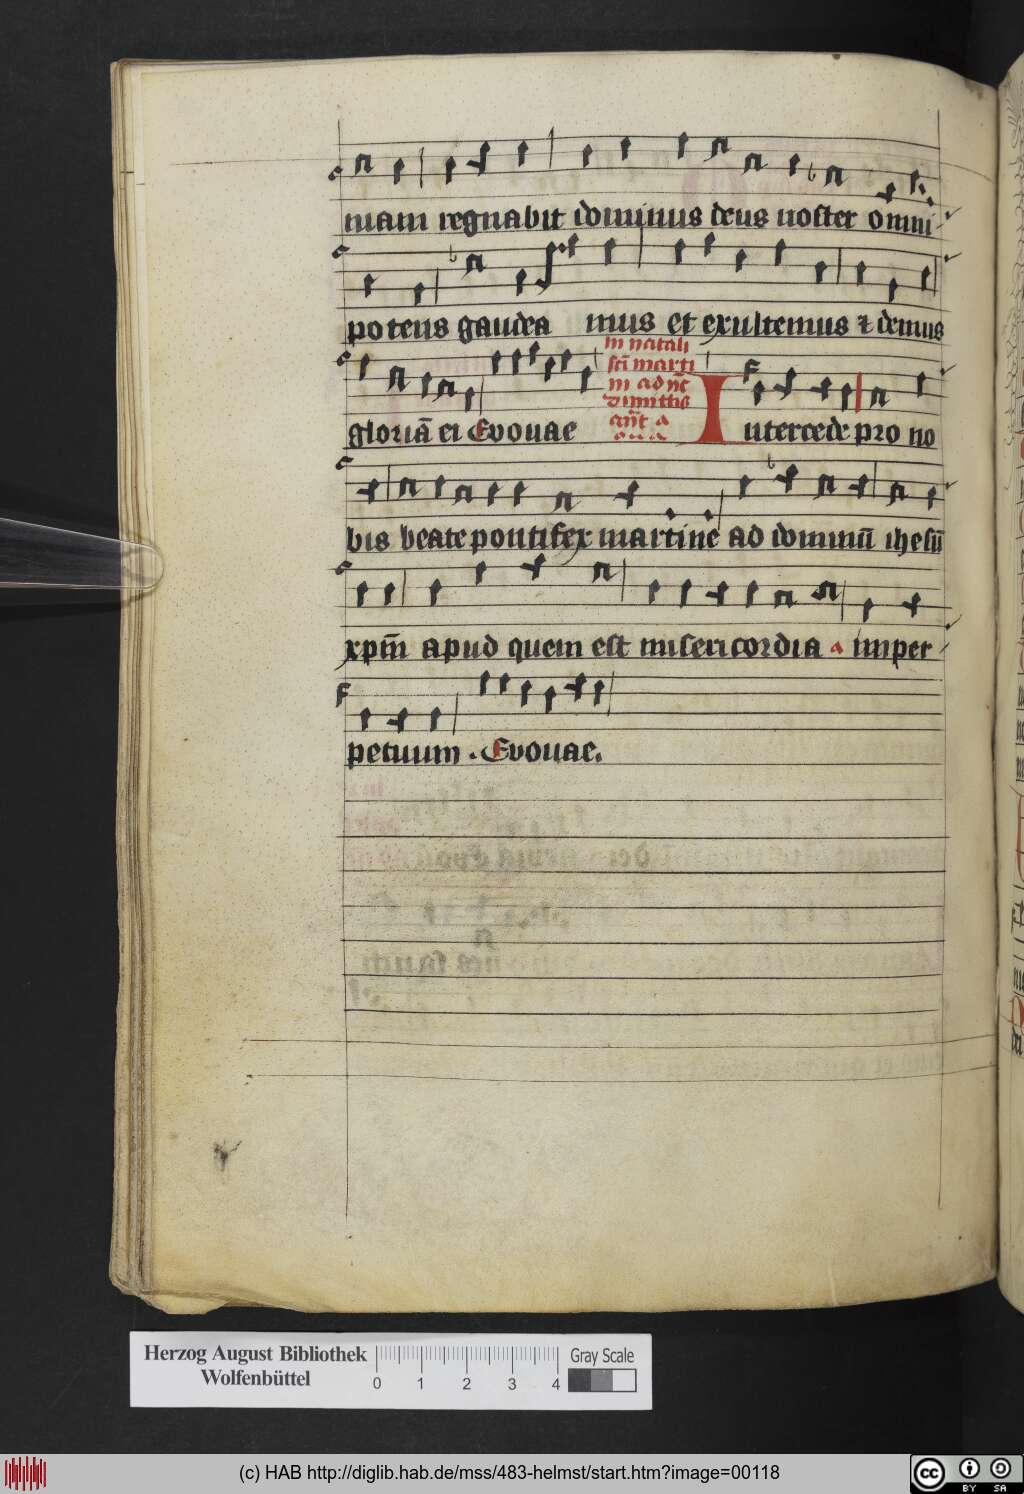 niam regnabit dominus deus noster omni
potens gaudea mus et exultemus ⁊ demus
gloriā ei Euouae
in natali
scī marti
ni ad nc̄
dimittis
anͭ a
Intercede pro no
bis beate pontifex martine ad dominū ihesū
xpm̄ apud quem est misericordia a imper
petuum . Euouae.
Herzog August Bibliothek
Wolfenbüttel
0 1 2 3 4
Gray Scale
(c) HAB http://diglib.hab.de/mss/483-helmst/start.htm?image=00118
cc BY SA